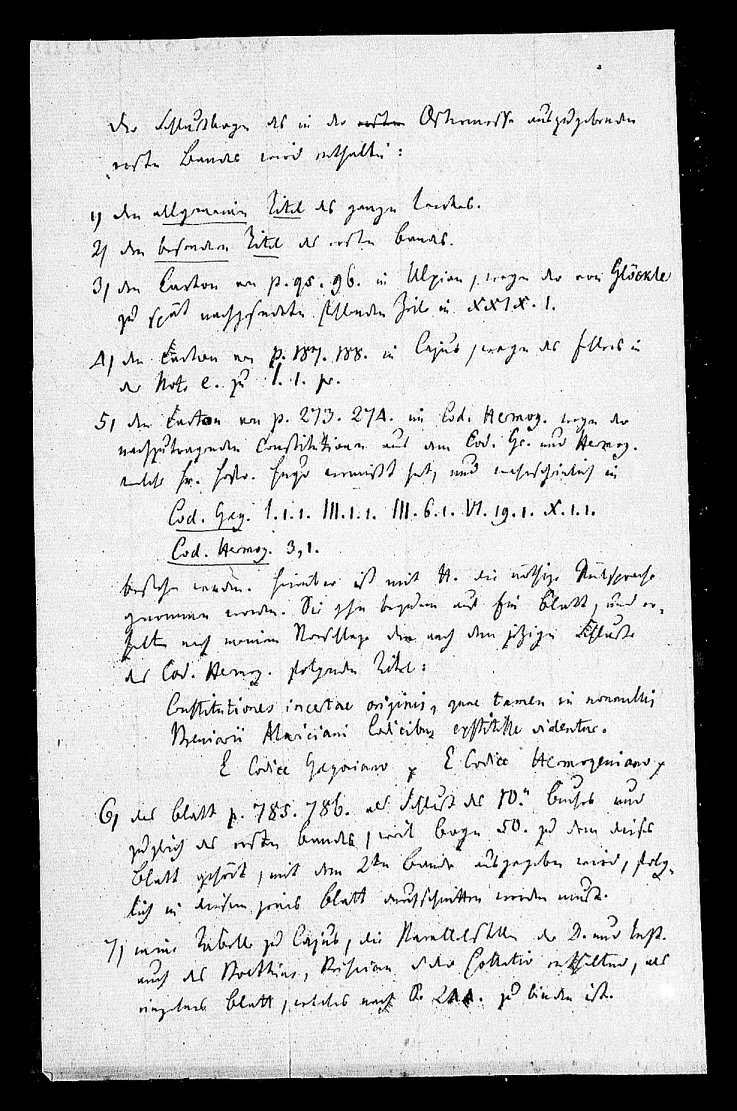 Der Schlußbogen des in der ersten Ostermesse auszugebenden
ersten Bandes wird enthalten:
1) den allgemeinen Titel des ganzen Werkes.
2) den besondern Titel des ersten Bandes.
3) den Carton von p. 95. 96. in Ulpian, wegen der von Glöckle
zu spät nachgesendeten fehlenden Zeile in XXIX. 1.
4) den Carton von p. 187. 188. in Cajus, wegen des Fehlers in
der Note e. zu I. 1. pr.
5) den Carton von p. 273. 274. im Cod. Hermog. wegen der
nachzutragenden Constitutionen aus dem Cod. Gr. und Hermog.
welche Hr. Hofr. Hugo vermißt hat, und wahrscheinlich in
Cod. Greg. I. 1. 1. III. 1. 1. III. 6. 1. VI. 19. 1. X. 1. 1.
Cod. Hermog. 3, 1.
bestehen werden. Hierüber ist mit H. die nöthige Rücksprache
genommen worden. Sie gehn bequem auf Ein Blatt, und er-
halten nach meinem Vorschlage nach dem jetzigen Schlusse
des Cod. Hermog. folgenden Titel:
Constitutiones incertae originis, quae tamen in nonnullis
Breviarii Alariciani Codicibus exstitisse videntur.
E Codice Gregoriano E Codice Hermogeniano
6) das Blatt p. 785. 786. als Schluß des 10.n Buchs und
zugleich des ersten Bandes, weil Bogen 50. zu dem dieses
Blatt gehört, mit dem 2ten Bande ausgegeben wird, folg-
lich in diesem jenes Blatt durchschnitten werden muß.
7) meine Tabelle zu Cajus, die Parallelstellen der D. und Inst.
auch des Boethius, Priscian u der Collatio enthaltend, als
einzelnes Blatt, welches nach S. 244. zu binden ist.